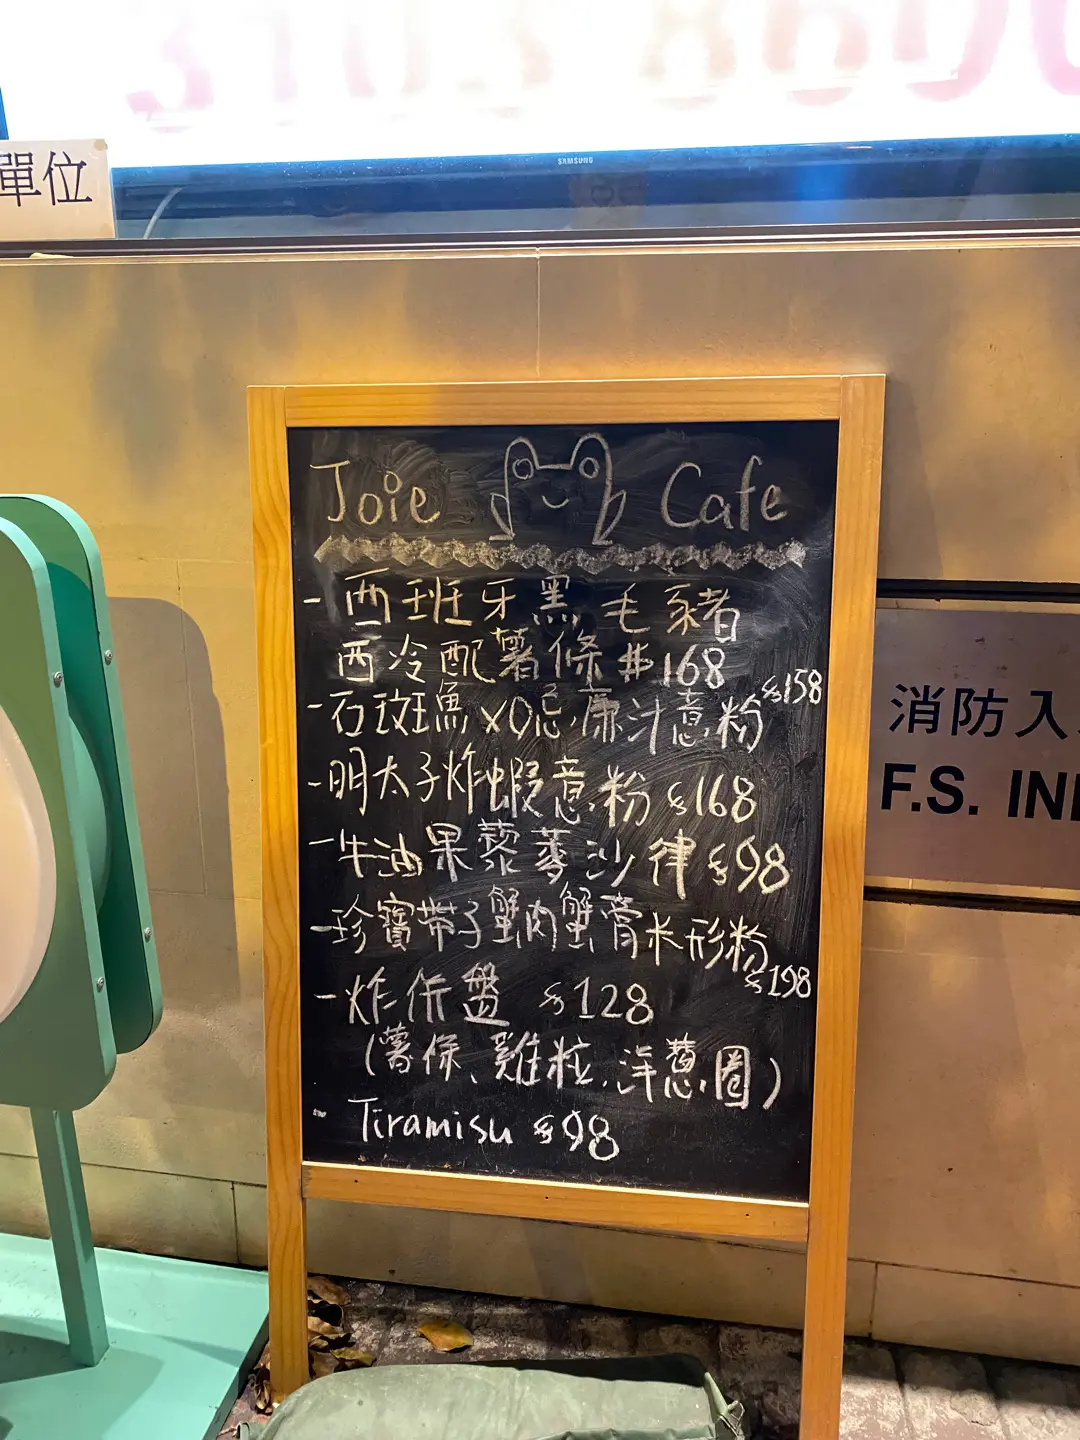 3103 880
SAMSUNG
單位
Joie Cafe
- 西班牙黑毛豬
西冷配薯條 $168
- 石斑魚XO忌廉汁意粉 $158
- 明太子炸蝦意粉 $168
- 牛油果藜麥沙律 $98
- 珍寶帶子蟹肉蟹膏米形粉 $198
- 炸併盤 $128
(薯條、雞粒、洋蔥圈)
- Tiramisu $98
消防入
F.S. IN